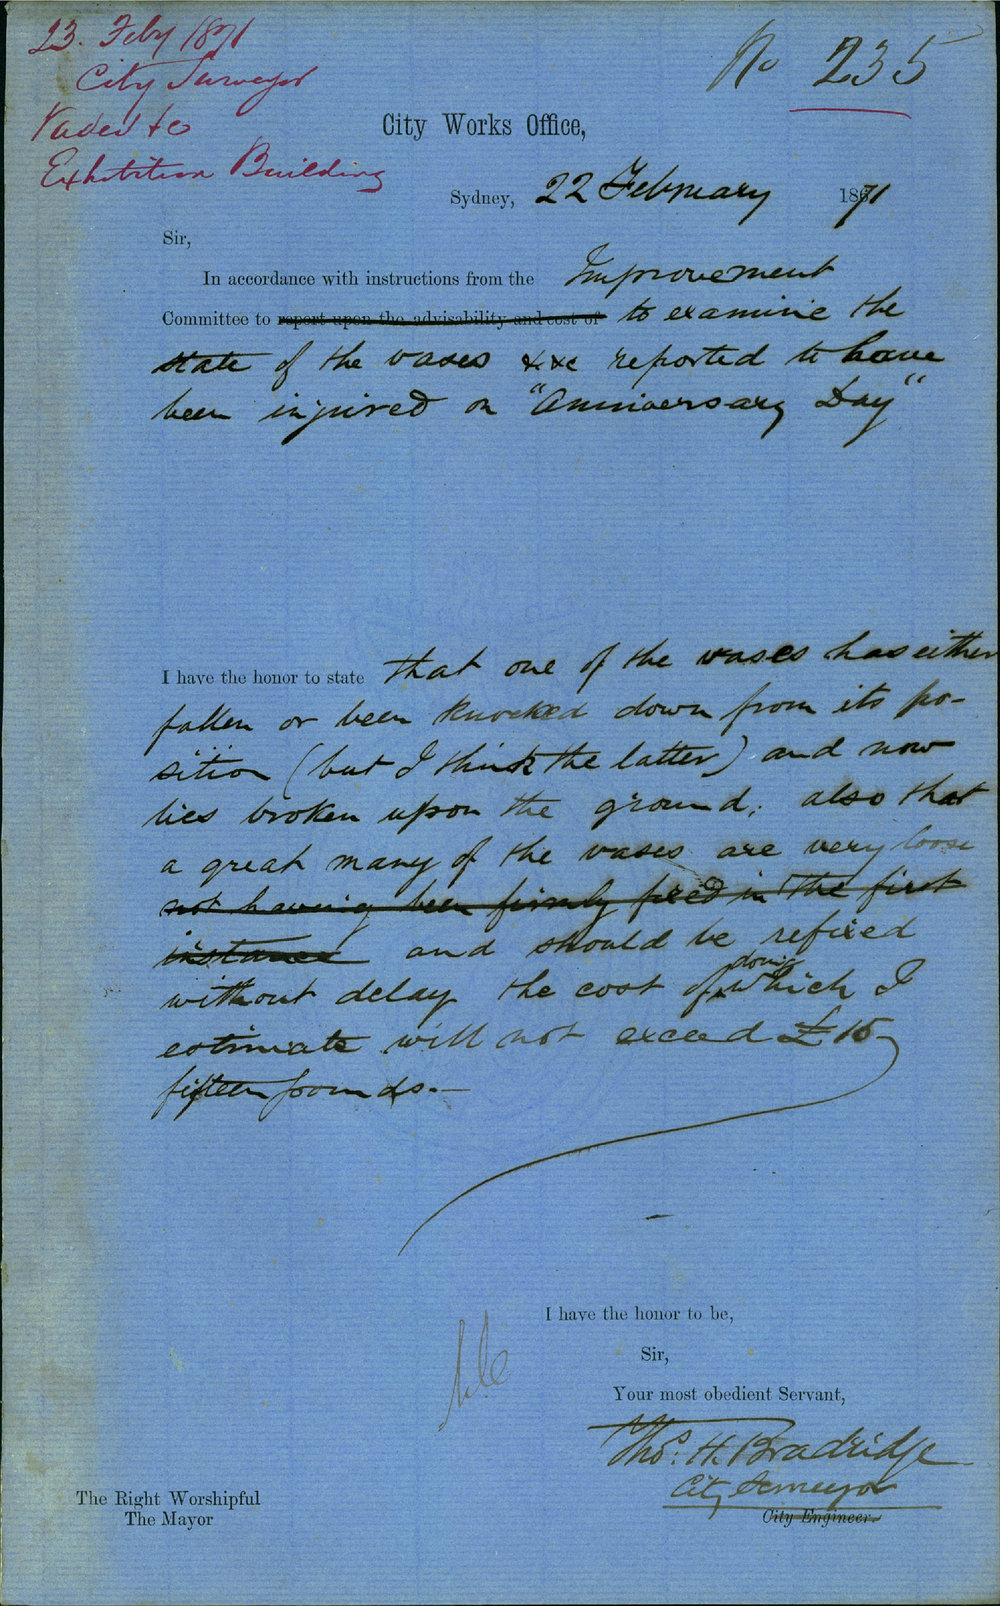 23. Feby 1871
City Surveyor
Vases to
Exhibition Building
No 235
City Works Office,
Sydney, 22 February 1871
Sir,
In accordance with instructions from the Improvement
Committee to report upon the advisability and cost of to examine the
state of the vases &c &c reported to have
been injured on "Anniversary Day"
I have the honor to state that one of the vases has either
fallen or been knocked down from its po-
sition (but I think the latter) and now
lies broken upon the ground; also that
a great many of the vases are very loose
not having been firmly fixed in the first
instance and should be refixed
without delay the cost of doing which I
estimate will not exceed £15
fifteen pounds.—
I have the honor to be,
Sir,
Your most obedient Servant,
Thos. H. Bradridge
City Surveyor
City Engineer.
The Right Worshipful
The Mayor